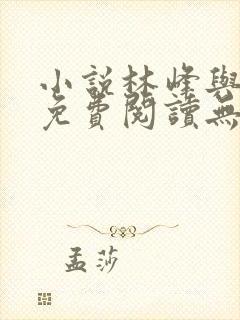 小說林峰與
免費閱讀無
孟莎